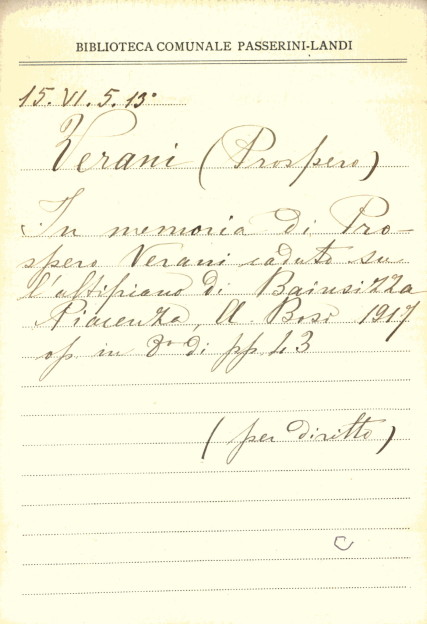 BIBLIOTECA COMUNALE PASSERINI-LANDI
15. VI. 5. 13°
Verani (Prospero)
In memoria di Pro-
spero Verani caduto su
l'altipiano di Bainsizza
Piacenza, A Bosi 1917
op in 8° di pp 43
(per diritto)
C